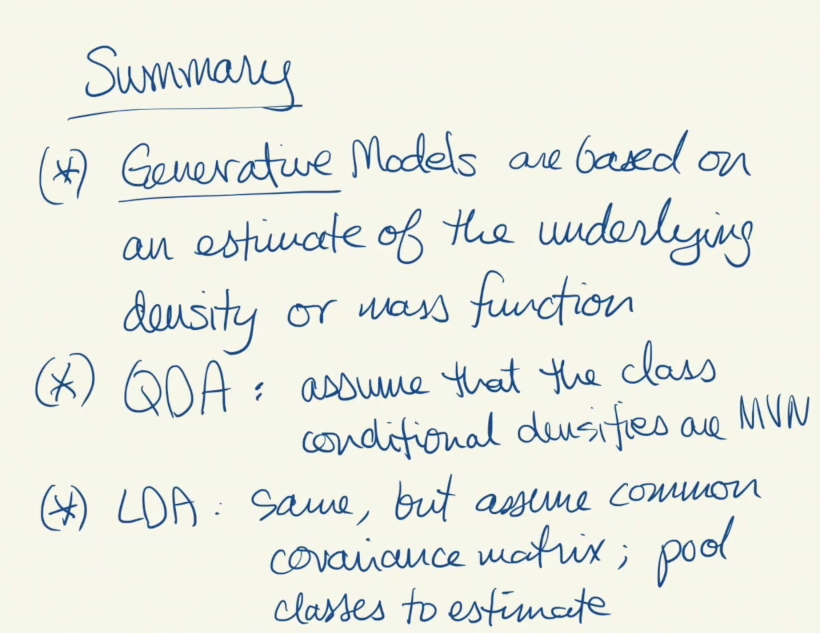 Summary
(*) Generative Models are based on
an estimate of the underlying
density or mass function
(*) QDA : assume that the class
conditional densities are MVN
(*) LDA : same, but assume common
covariance matrix; pool
classes to estimate